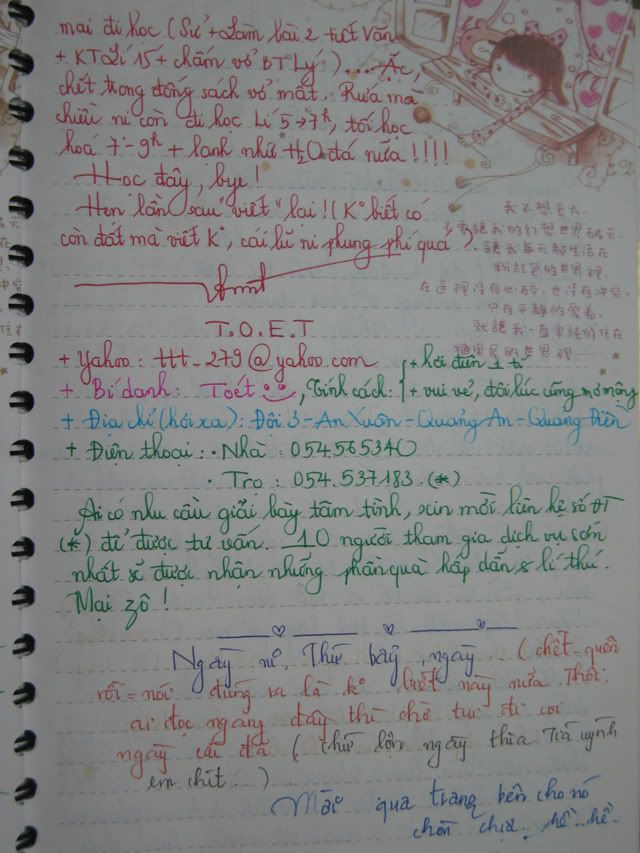 mai đi học (Sử + Làm bài 2 tiết Văn
+ KT Lí 15 + chấm vở BT Lý) .... Ặc,
chết trong đống sách vở mất. Rứa mà
chiều ni còn đi học Lí 5→7h, tối học
hoá 7-9h + lạnh như H2O đá nữa !!!!
Học đây, bye !
Hẹn lần sau "viết" lại !! (K° biết có
còn đất mà viết K°, cái lũ ni phung phí quá)
我不想長大
要讓我的幻想世界破滅
讓我每天都生活在
粉紅色的世界裡
在這裡沒有心碎,也沒有冲突
只有平靜的愛着
就讓我一直單純的住在
糖果屋的世界裡......
T.O.E.T
+ Yahoo : ttt_279@yahoo.com
+ Bí danh : Toét, Tính cách : + hơi điên 1 tí
+ vui vẻ, đôi lúc cũng mơ mộng
+ Địa chỉ (hơi xa) : Đội 3 - An Xuân - Quảng An - Quảng Điền
+ Điện thoại : • Nhà : 054.565340
• Trọ : 054.537183 (*)
Ai có nhu cầu giải bày tâm tình, xin mời liên hệ số ĐT
(*) để được tư vấn. 10 người tham gia dịch vụ sớm
nhất sẽ được nhận những phần quà hấp dẫn & lí thú.
Mại zô !
Ngày ni, Thứ bảy, ngày... (chết - quên
rồi = nói đúng ra là k° biết ngày nữa. Thôi,
ai đọc ngang đây thì chờ tui đi coi
ngày cái đã (chứ lộn ngày thìa
em chít.)...
Mời qua trang bên cho nó
hề hề.